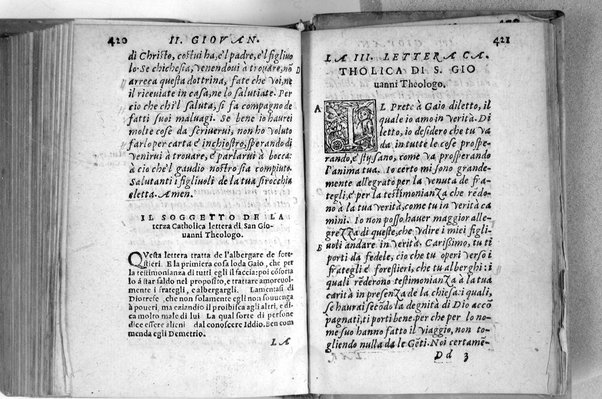 420 II. GIOVAN.
di Christo, costui ha, è'l padre, e'l figliuo
lo. Se chichesia, venendoui à trouare, nō
arreca questa dottrina, fate che voi, ne
il riceuiate in casa, ne lo salutiate. Per
cio che chi'l saluta, si fa compagno de
fatti suoi maluagi. Se bene io haurei
molte cose da scriuerui, non ho voluto
farlo per carta è inchiostro, sperando di
venirui à trouare, è parlarui à bocca:
à cio che'l gaudio nostro sia compiuto.
Salutanti i figliuoli de la tua sirocchia
eletta. Amen.
IL SOGGETTO DE LA
terza Catholica lettera di San Gio-
uanni Theologo.
Questa lettera tratta de l'albergare de fore-
stieri. E la primiera cosa loda Gaio, che per
la testimonianza di tutti egli il faccia: poi cōforta
lo à star saldo nel proposito, e trattare amoreuol-
mente i frategli, e albergargli. Lamentasi di
Diotrefe, che non solamente egli non souuenga
à poueri, ma etiandio il prohibisca agli altri, e di-
ca molto male di lui. La qual sorte di persone
dice essere alieni dal conoscere Iddio. Ben com-
menda egli Demetrio.
LA
421
LA III. LETTERA CA-
THOLICA DI S. GIO
uanni Theologo.
A IL Prete à Gaio diletto, il
quale io amo in verità. Di
letto, io desidero che tu va
da in tutte le cose prospe-
rando, e stij sano, come va prosperando
l'anima tua. Io certo mi sono grande-
mente allegrato per la venuta de fra-
tegli, e per la testimonianza che redo-
no à la tua verità, come tu in verità ca
mini. Io non posso hauer maggior alle-
grezza di queste, che vdire i miei figli-
B uoli andare in verità. Carissimo, tu ti
porti da fedele, cio che tu operi verso i
frategli è forestieri, che tu alberghi: i
quali rēderono testimonianza à la tua
carità in presenza de la chiesa: i quali,
se haurai secōdo la degnità di Dio accō
pagnati, ti porti bene: per che per lo no-
me suo hanno fatto il viaggio, non to-
gliendo nulla da le Gēti. Noi certamē-
Dd 3